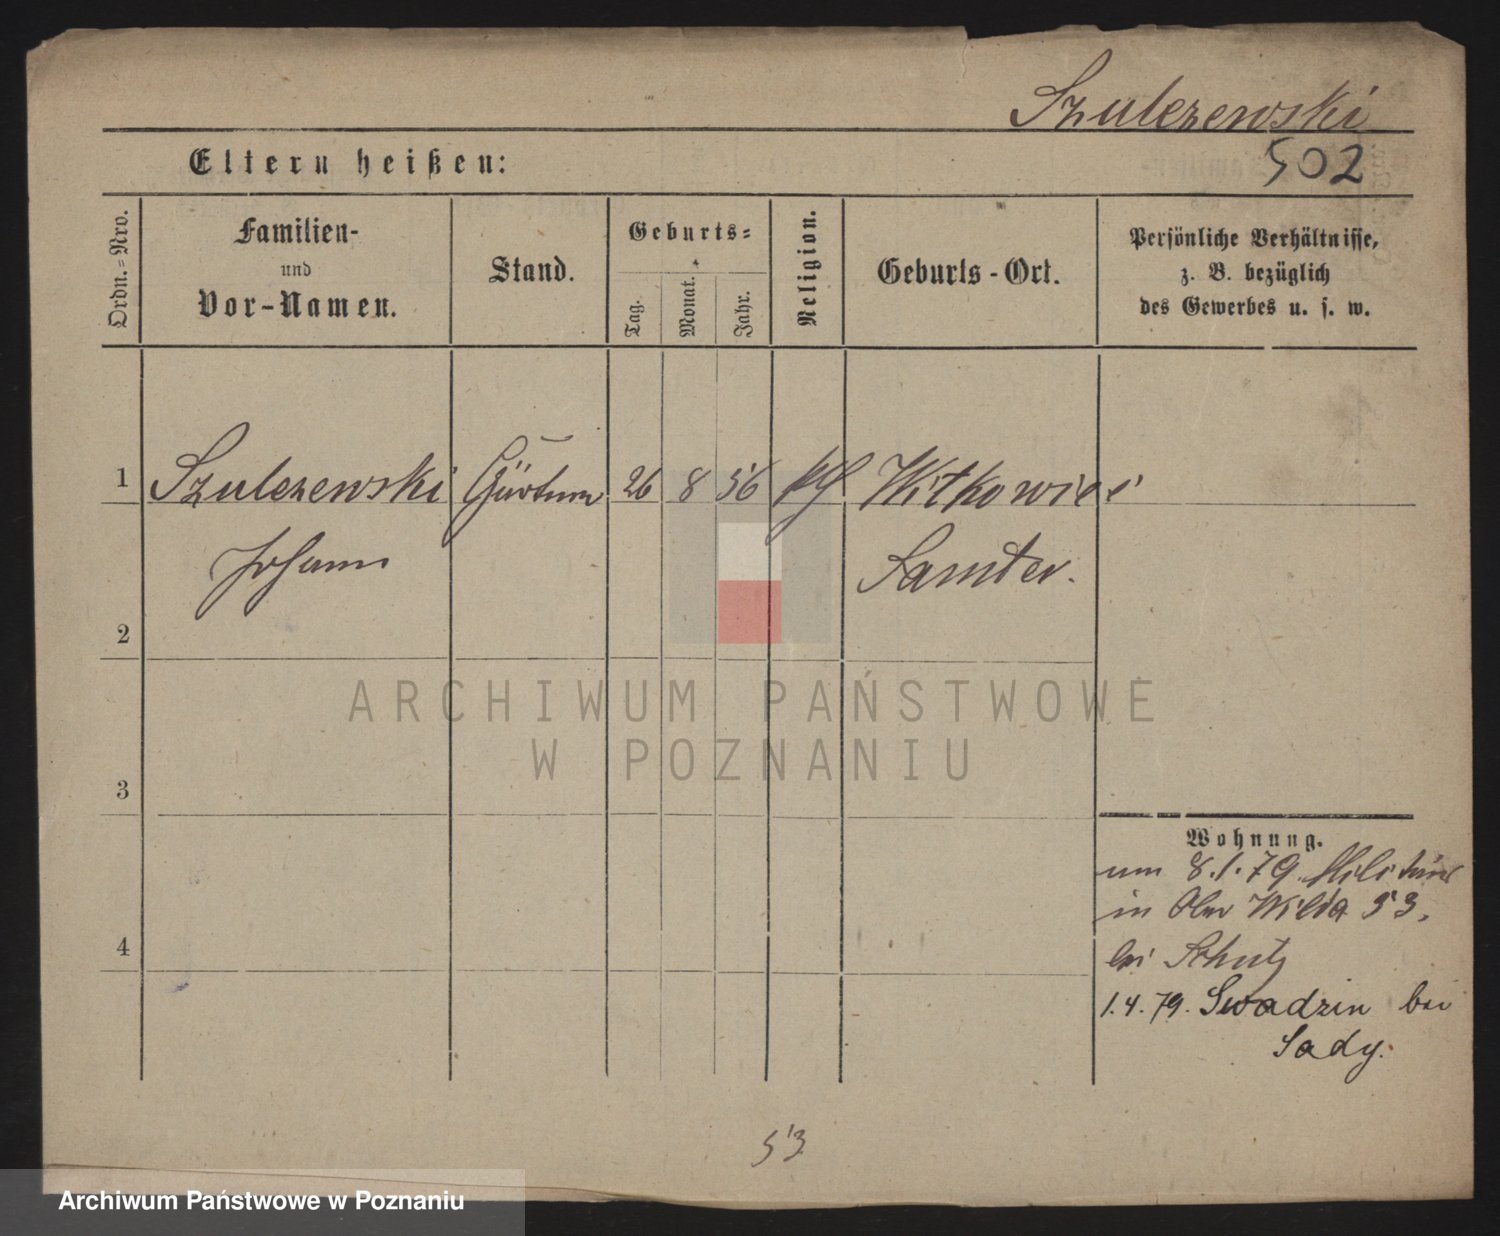 Szulczewski
Eltern heißen:
502
Ordn.=Nro.
Familien-
und
Vor-Namen.
Stand.
Geburts=
Tag.
Monat.
Jahr.
Religion.
Geburts-Ort.
Persönliche Verhältnisse,
z. B. bezüglich
des Gewerbes u. s. w.
1 Szulczewski Gärtner 26 8 56 kth Witkowice
Johann Samter.
2
ARCHIWUM PAŃSTWOWE
W POZNANIU
3
Wohnung.
um 8.1.79. Militär
in Ober Wilda 53.
4
bei Schutz
1.4.79. Swadzin bei
Sady.
53
Archiwum Państwowe w Poznaniu